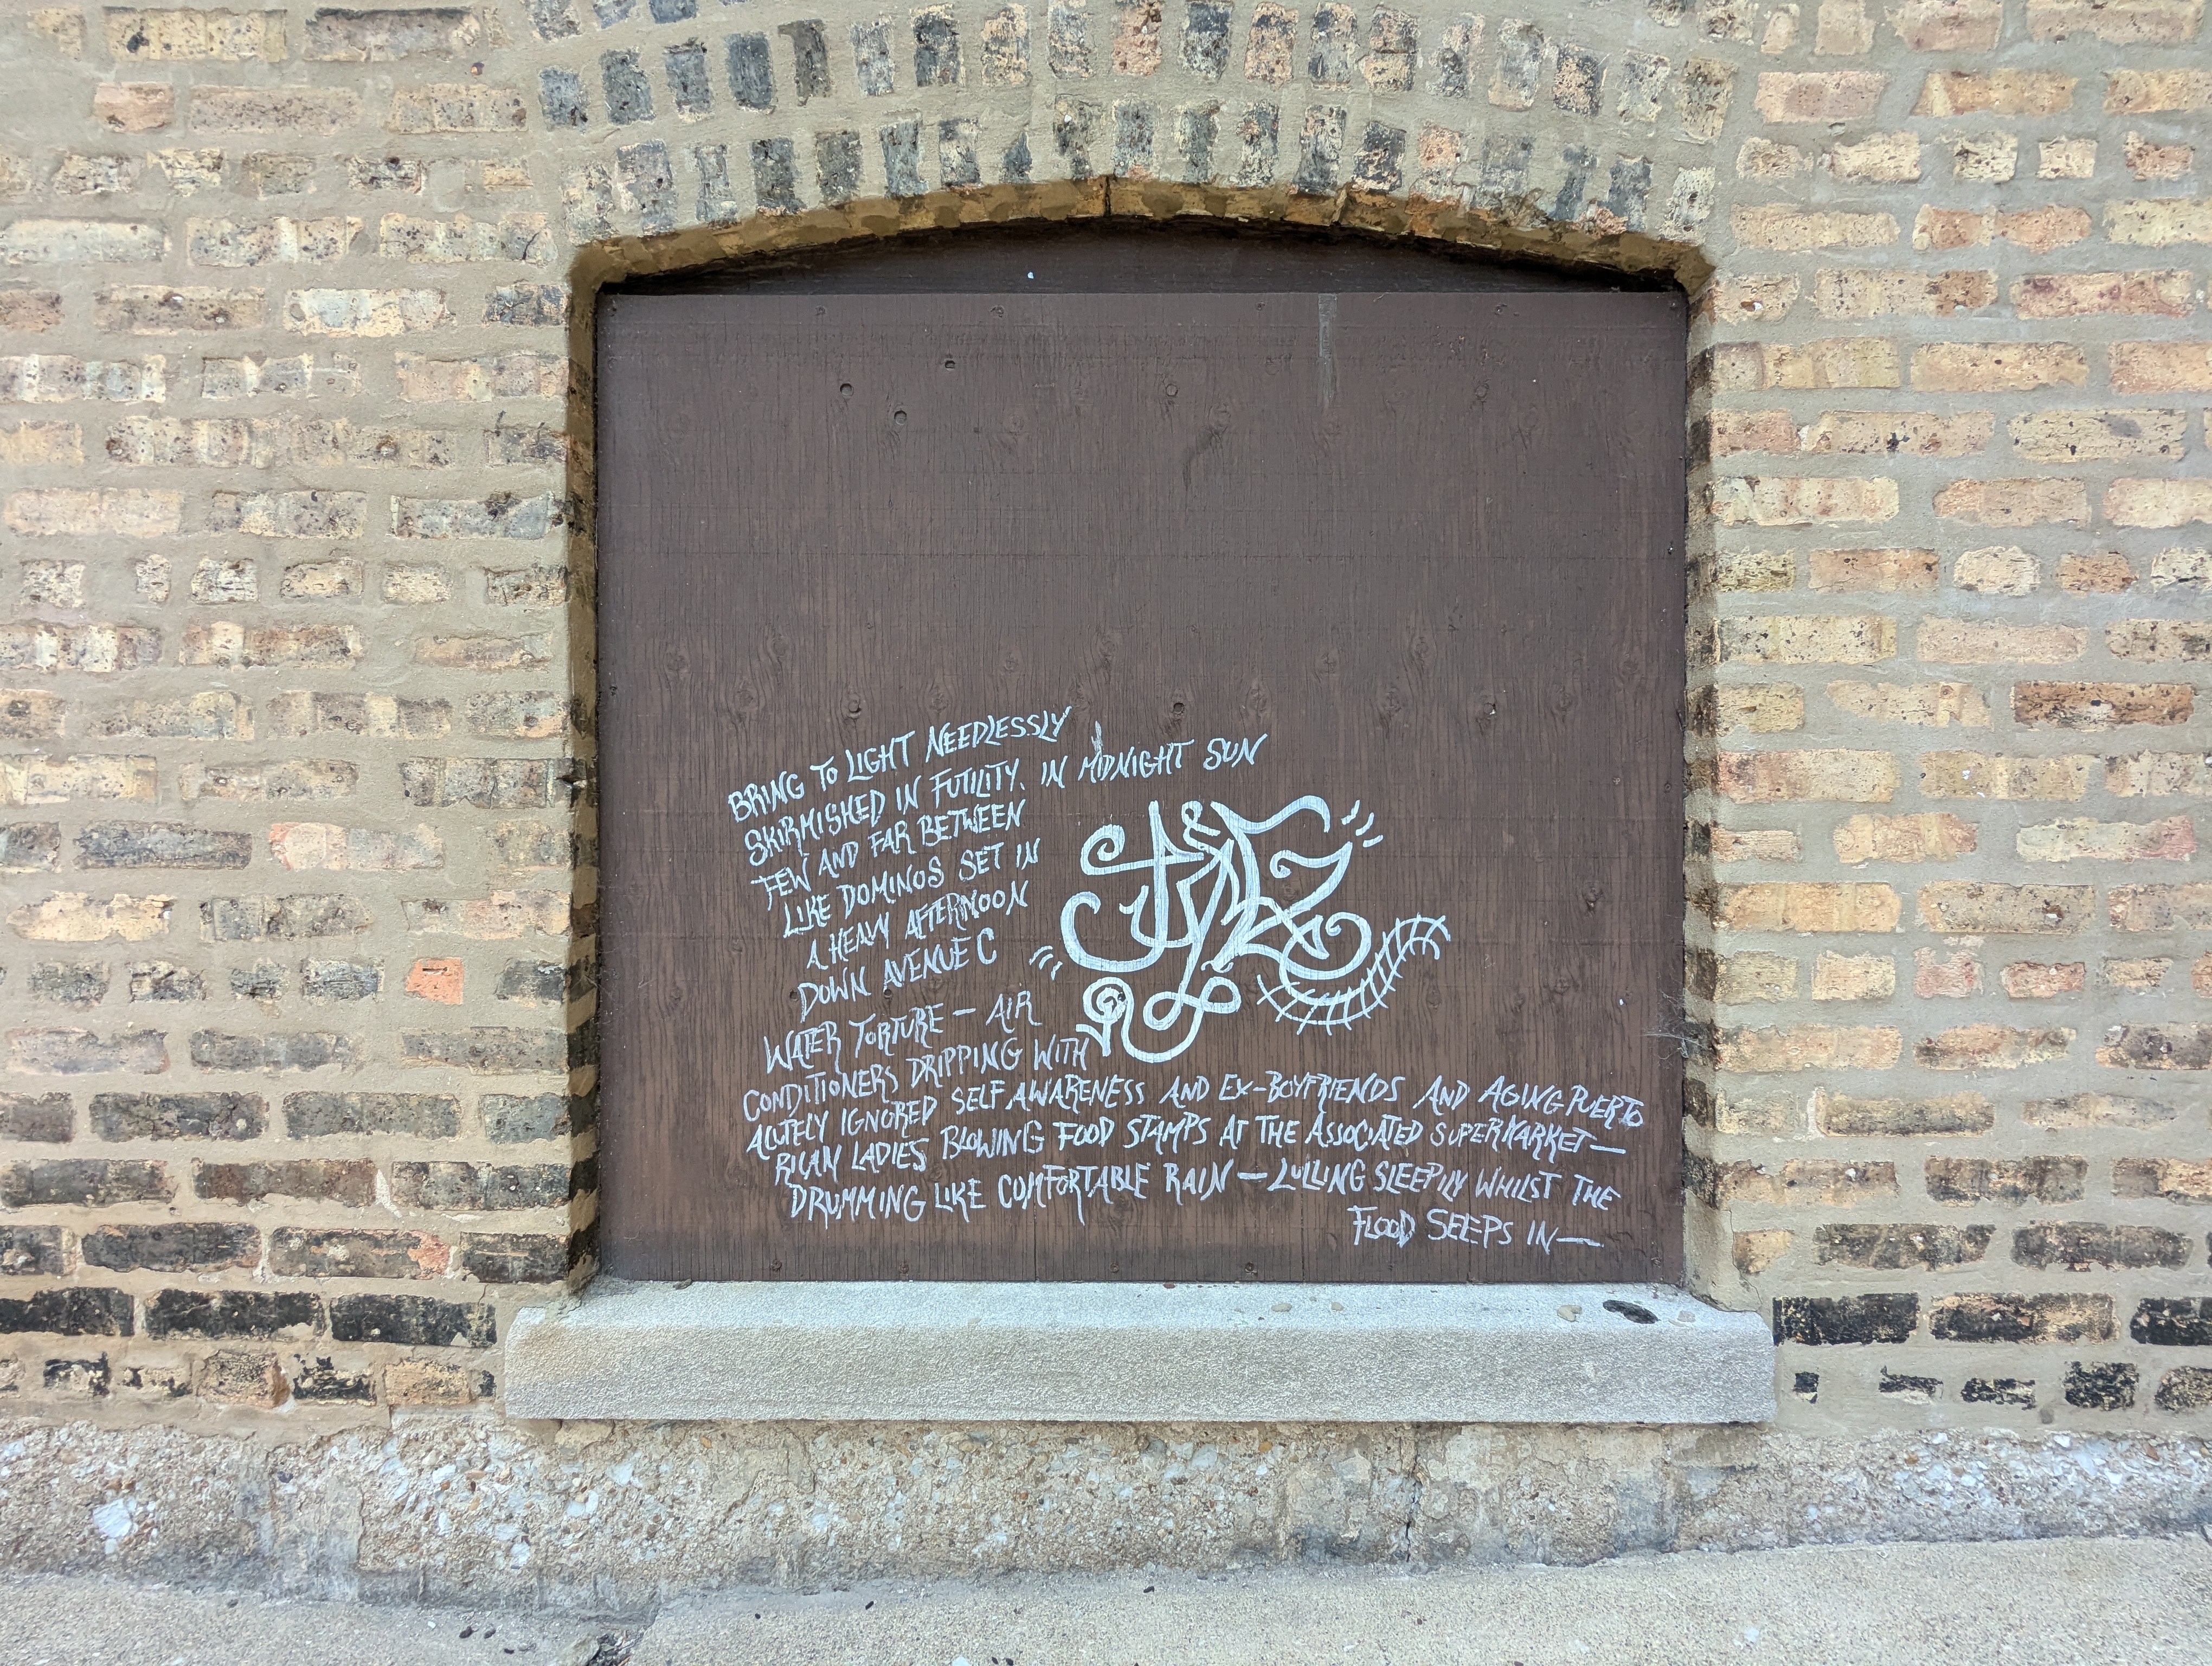 BRING TO LIGHT NEEDLESSLY
SKIRMISHED IN FUTILITY. IN MIDNIGHT SUN
FEW AND FAR BETWEEN
LIKE DOMINOS SET IN
A HEAVY AFTERNOON
DOWN AVENUE C
WATER TORTURE — AIR
CONDITIONERS DRIPPING WITH
ACUTELY IGNORED SELF AWARENESS AND EX-BOYFRIENDS AND AGING PUERTO
RICAN LADIES BLOWING FOOD STAMPS AT THE ASSOCIATED SUPERMARKET—
DRUMMING LIKE COMFORTABLE RAIN — LULLING SLEEPILY WHILST THE
FLOOD SEEPS IN—